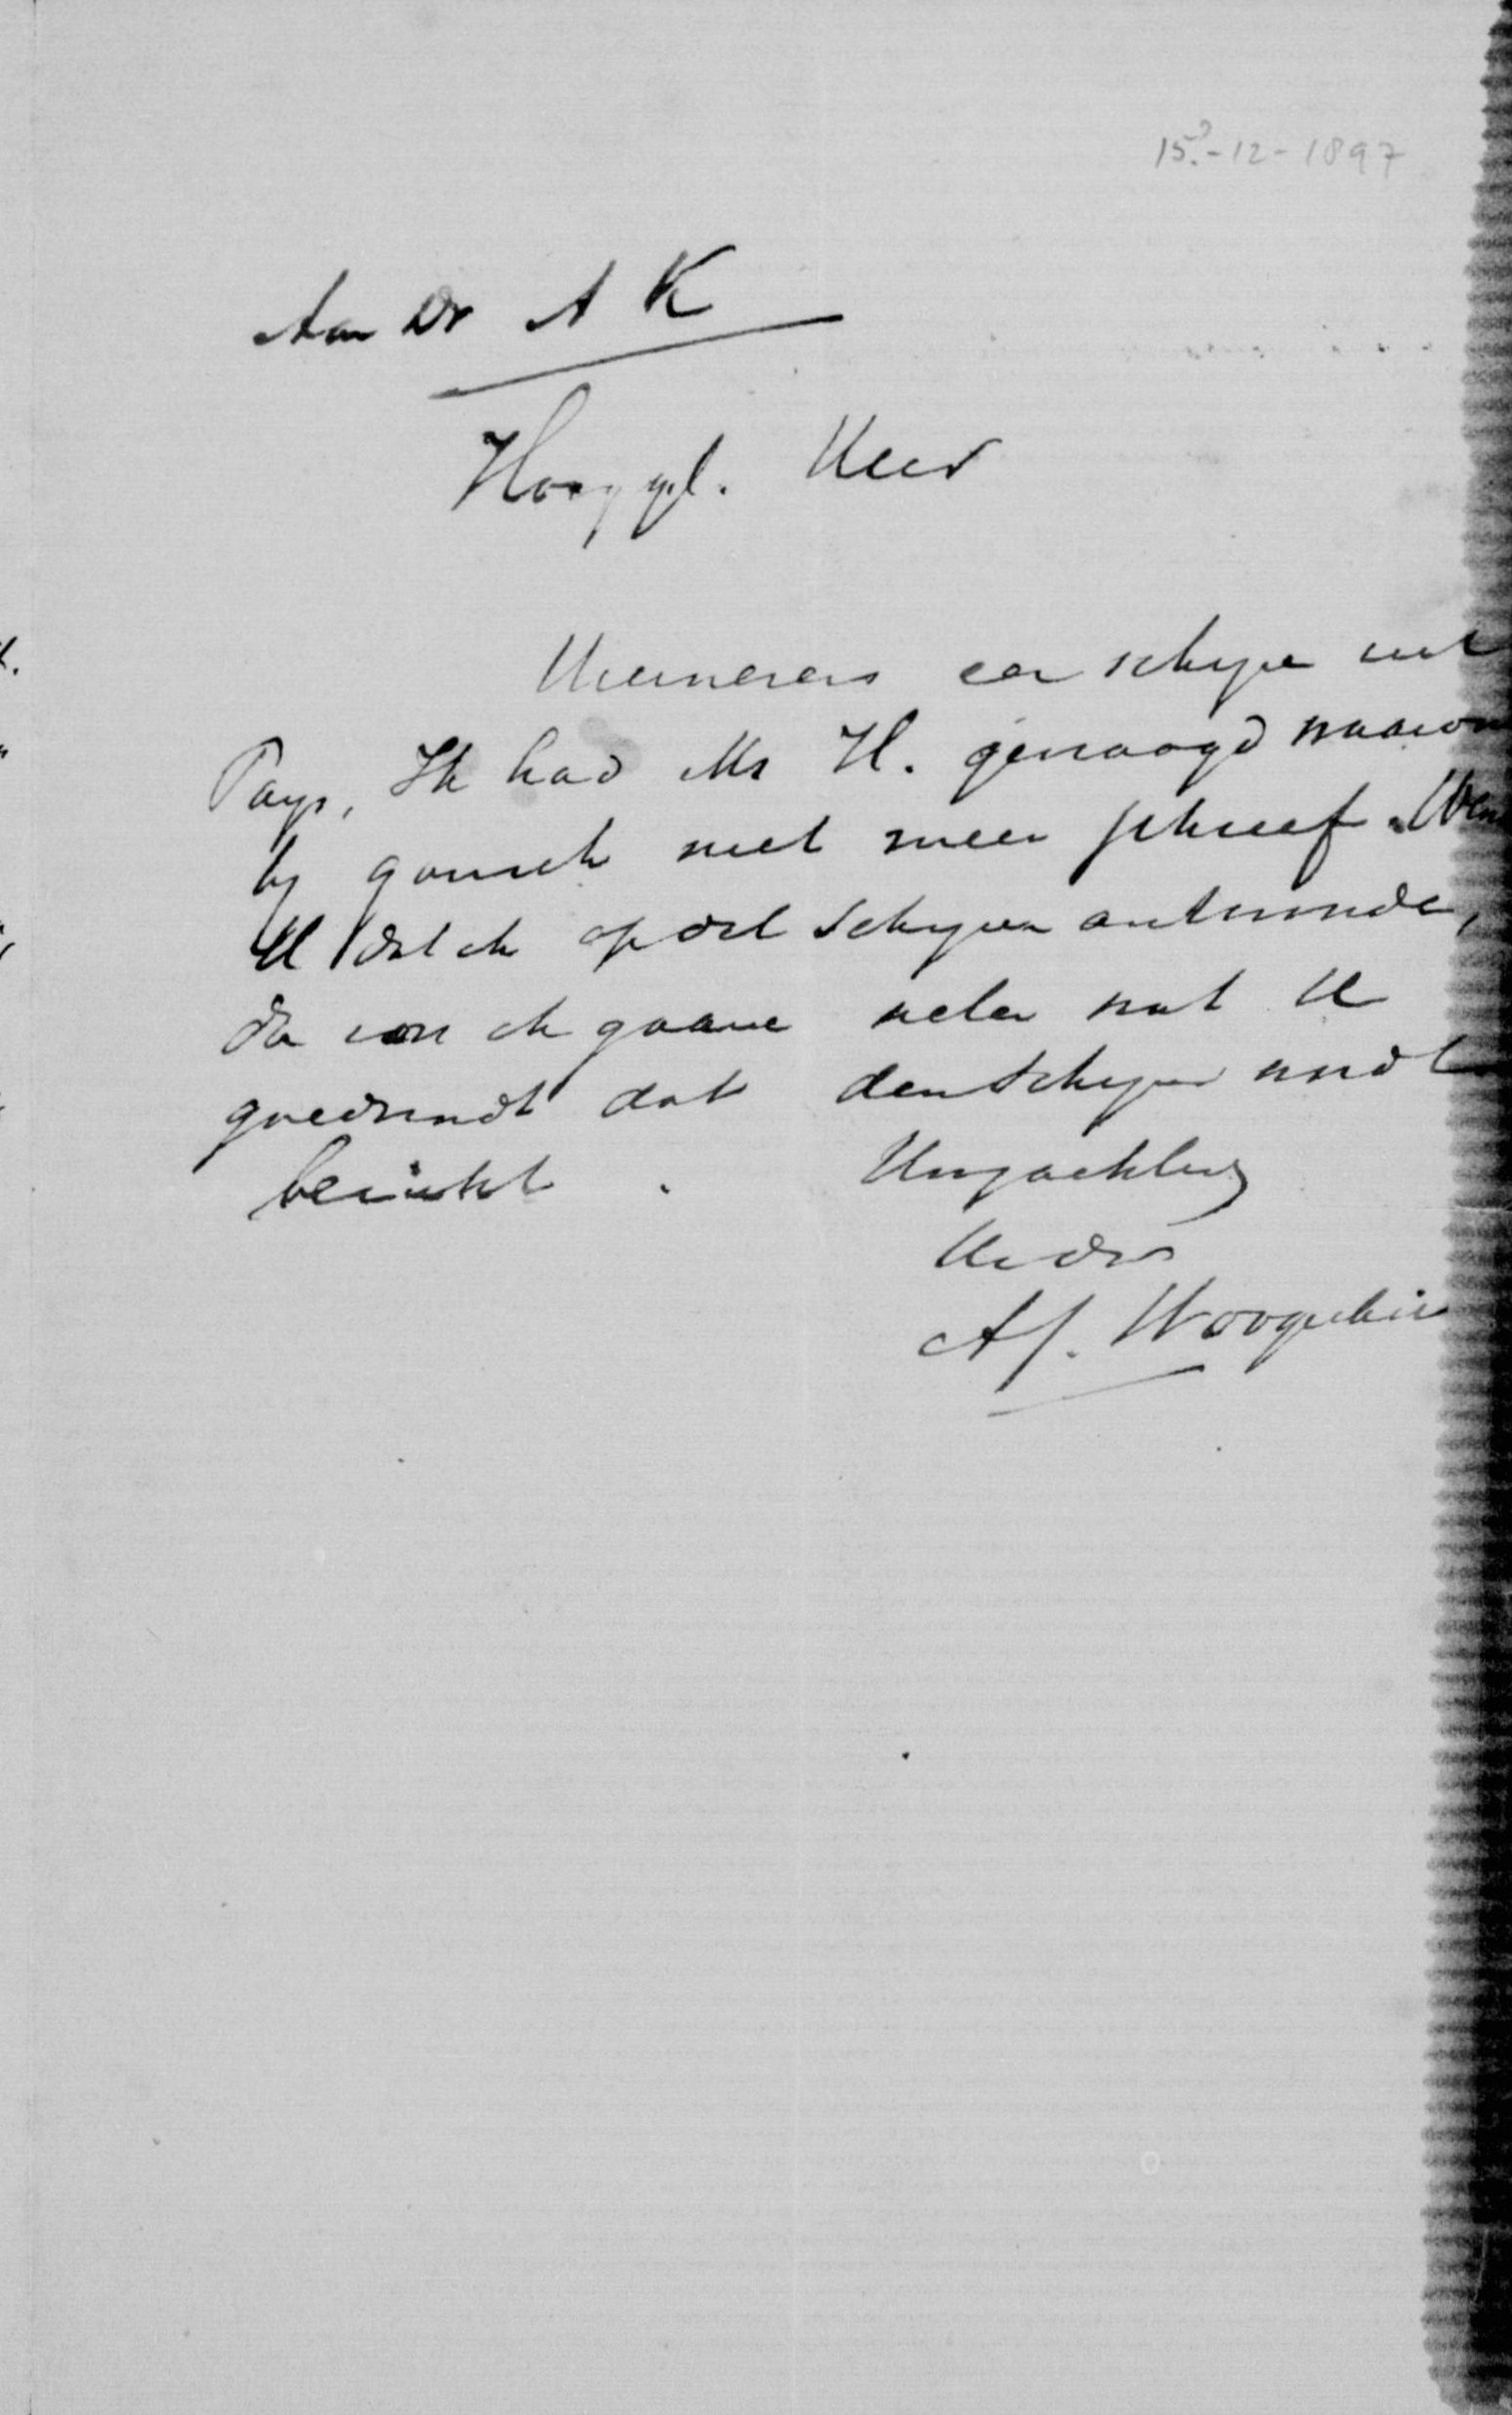 15?-12-1897
Aan Dr A K
Hooggel. Heer
Hiernevens een schrijven uit
Parijs, Ik had Mr H. gevraagd waarom
hij gansch niet meer schreef. Wen
U dat ik op dat schrijven antwoorde,
dan zou ik gaarne weten wat U
goedvindt dat den schrijver wordt
bericht.
Hoogachtend
Uw dr
A J. Hoogenbirk